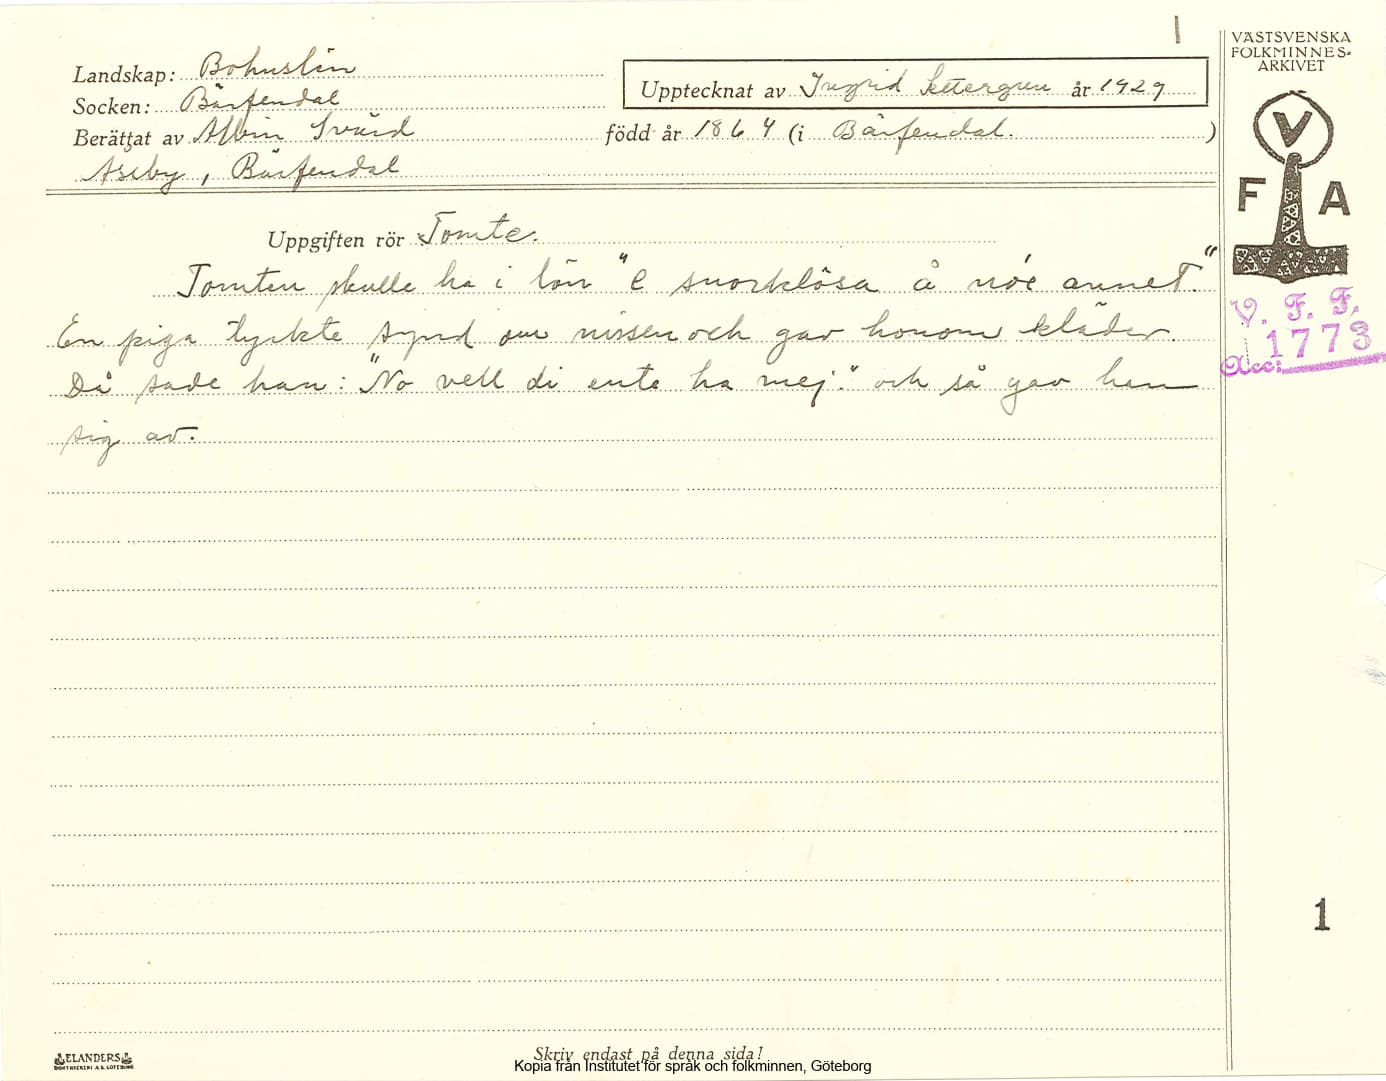 1
VÄSTSVENSKA
FOLKMINNES-
ARKIVET
V
F A
Landskap: Bohuslän
Socken: Bärfendal
Upptecknat av Ingrid år 1929
Berättat av Albin Svärd född år 1864 (i Bärfendal. )
Aseby, Bärfendal
Uppgiften rör Tomte.
Tomten skulle ha i lön "e snorklösa å nôe annet."
En piga tyckte synd om nissen och gav honom kläder.
Då sade han: "No vell di ente ha mej." och så gav han
sig av.
V. F. F.
1773
Acc:
1
ELANDERS
BOKTRYCKERI A.B. GÖTEBORG
Skriv endast på denna sida!
Kopia från Institutet för språk och folkminnen, Göteborg